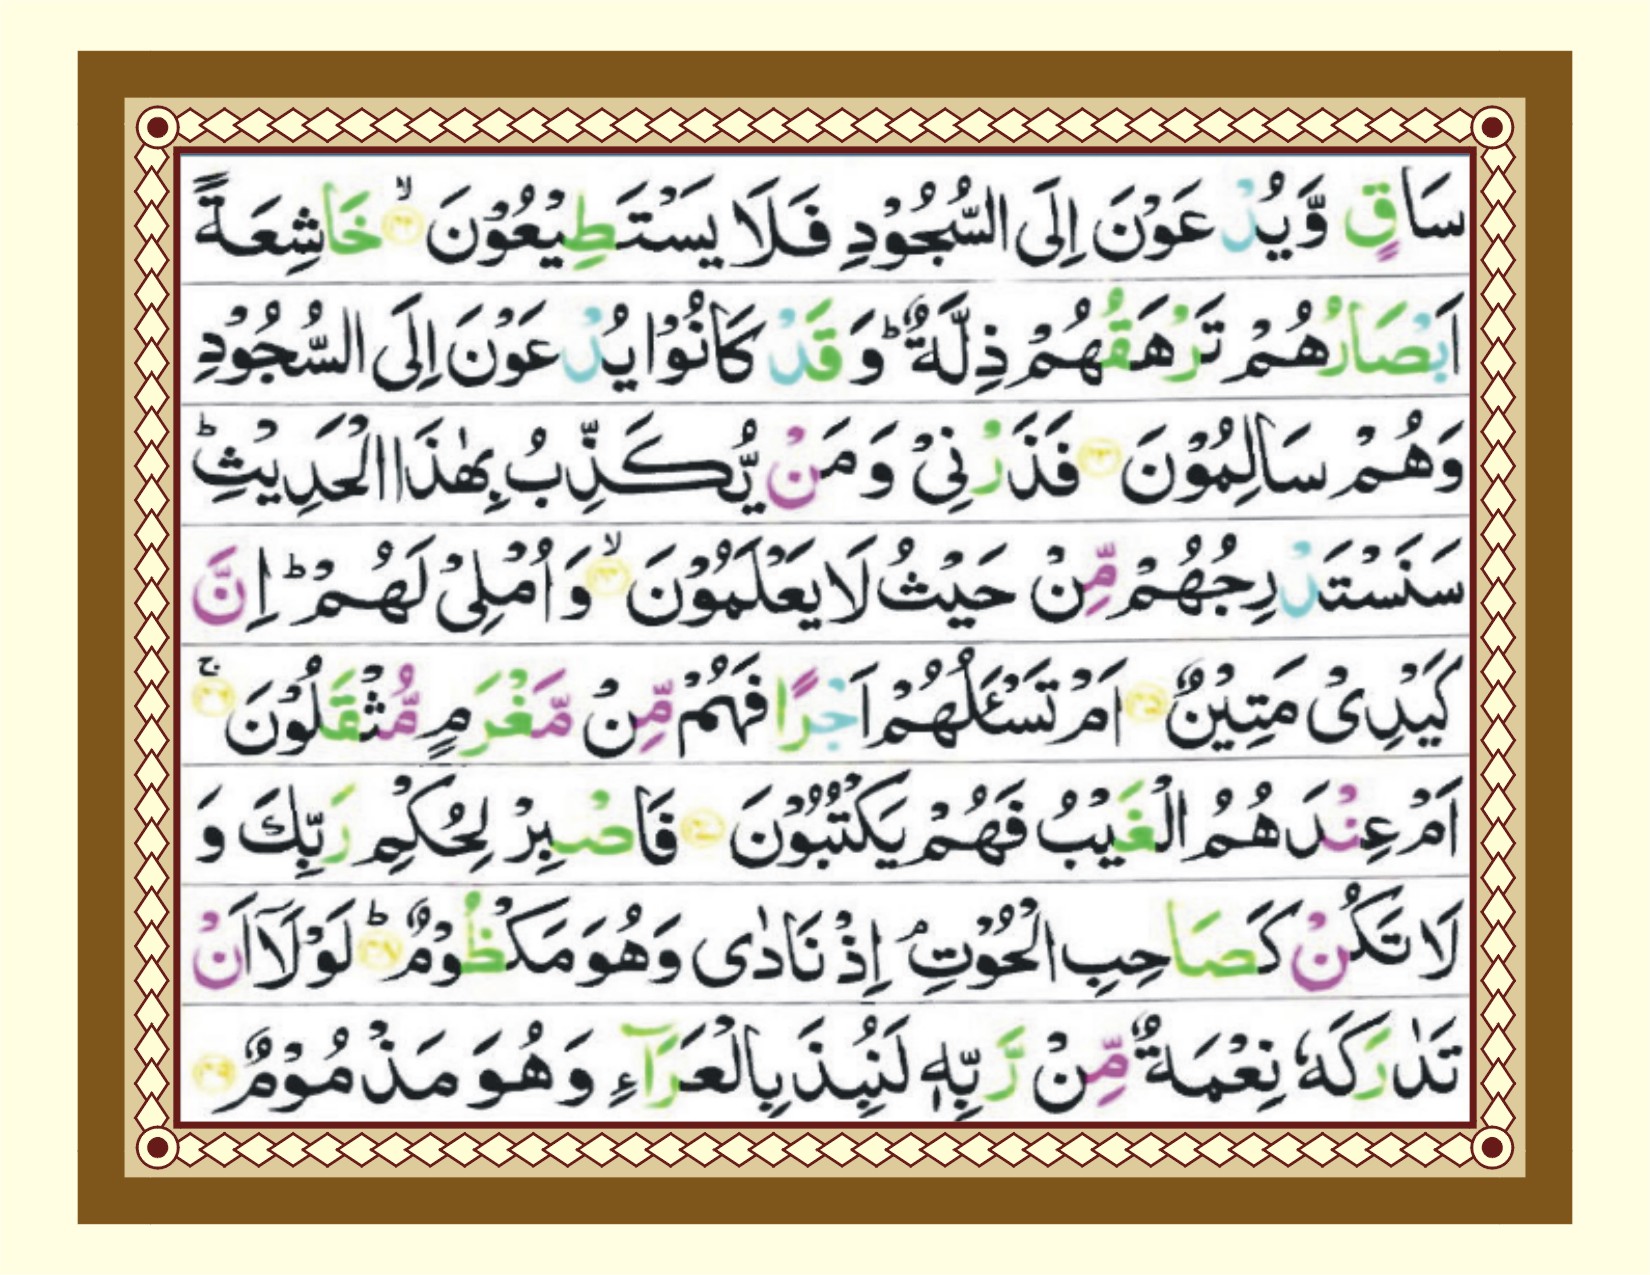 سَاقٍ وَّيُدْعَوْنَ اِلَى السُّجُوْدِ فَلَا يَسْتَطِيْعُوْنَ ۙ﴿۴۲﴾ خَاشِعَةً
اَبْصَارُهُمْ تَرْهَقُهُمْ ذِلَّةٌ ؕ وَقَدْ كَانُوْا يُدْعَوْنَ اِلَى السُّجُوْدِ
وَهُمْ سَالِمُوْنَ ﴿۴۳﴾ فَذَرْنِىْ وَمَنْ يُّكَذِّبُ بِهٰذَا الْحَدِيْثِ ؕ
سَنَسْتَدْرِجُهُمْ مِّنْ حَيْثُ لَا يَعْلَمُوْنَ ۙ﴿۴۴﴾ وَاُمْلِىْ لَهُمْ ؕ اِنَّ
كَيْدِىْ مَتِيْنٌ ﴿۴۵﴾ اَمْ تَسْـَٔلُهُمْ اَجْرًا فَهُمْ مِّنْ مَّغْرَمٍ مُّثْقَلُوْنَ ۚ﴿۴۶﴾
اَمْ عِنْدَهُمُ الْغَيْبُ فَهُمْ يَكْتُبُوْنَ ﴿۴۷﴾ فَاصْبِرْ لِحُكْمِ رَبِّكَ وَ
لَا تَكُنْ كَصَاحِبِ الْحُوْتِ ۘ اِذْ نَادٰى وَهُوَ مَكْظُوْمٌ ؕ﴿۴۸﴾ لَوْلَاۤ اَنْ
تَدٰرَكَهٗ نِعْمَةٌ مِّنْ رَّبِّهٖ لَنُبِذَ بِالْعَرَآءِ وَهُوَ مَذْمُوْمٌ ﴿۴۹﴾